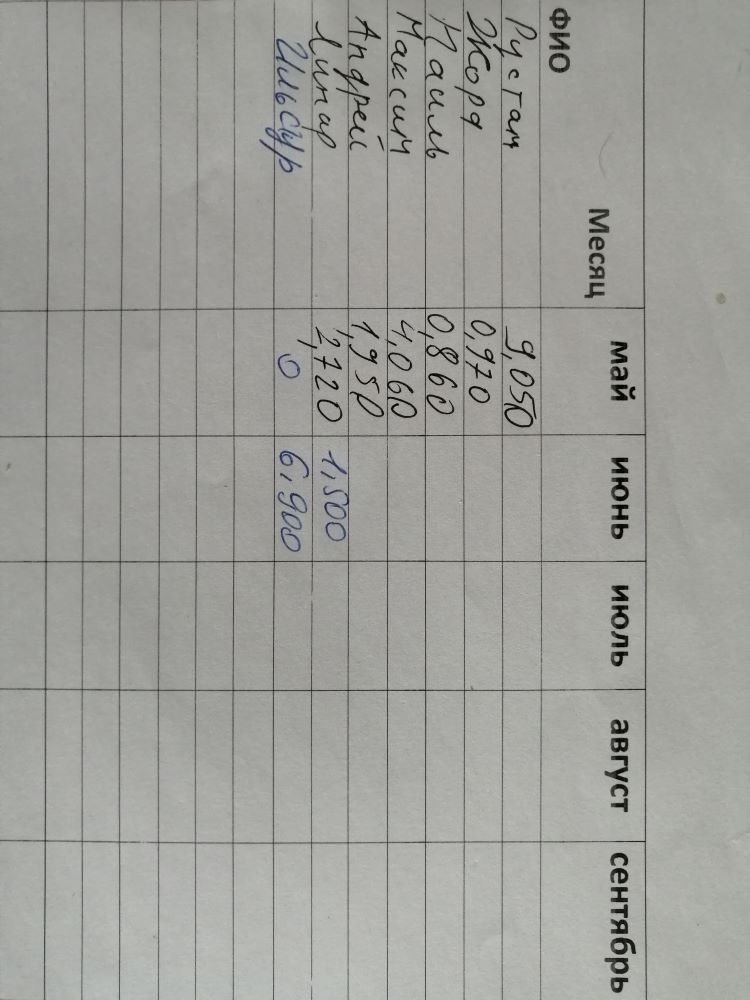 Месяц май июнь июль август сентябрь
ФИО
Рустам 9,050
Жора 0,970
Наиль 0,860
Максим 4,060
Андрей 1,950
Линар 2,720 1,500
Ильсур 0 6,900